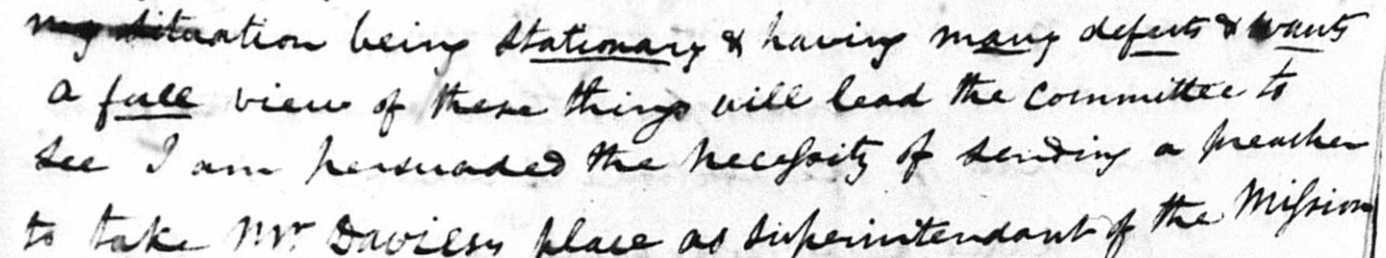 my situation being stationary & having many defects & wants
a full view of these things will lead the committee to
see I am persuaded the necessity of sending a preacher
to take Mr Davieses place as superintendant of the Mission